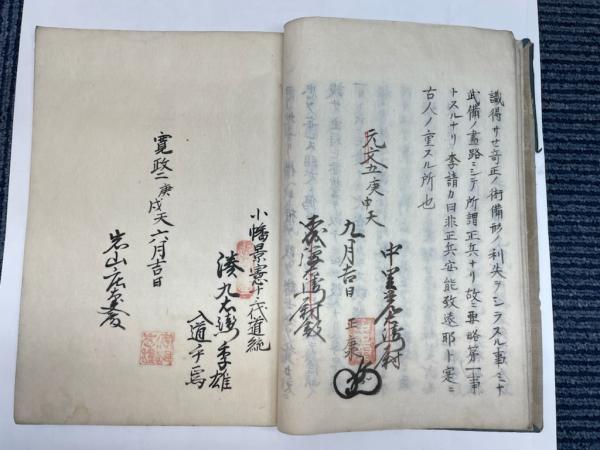 識得サセ奇正ノ術備形ノ利失ヲシラスル事ミナ
武備ノ書路ミシテ所謂正兵ナリ故ニ要略第一事
トスルナリ李請カ曰非正兵安能致遠耶ト寔ニ
古人ノ重スル所也
元文五庚申天
九月吉日
正康
小幡景憲十代道統
湊九右衛門季雄
入道手写
寛政二庚戌天六月吉日
岩山